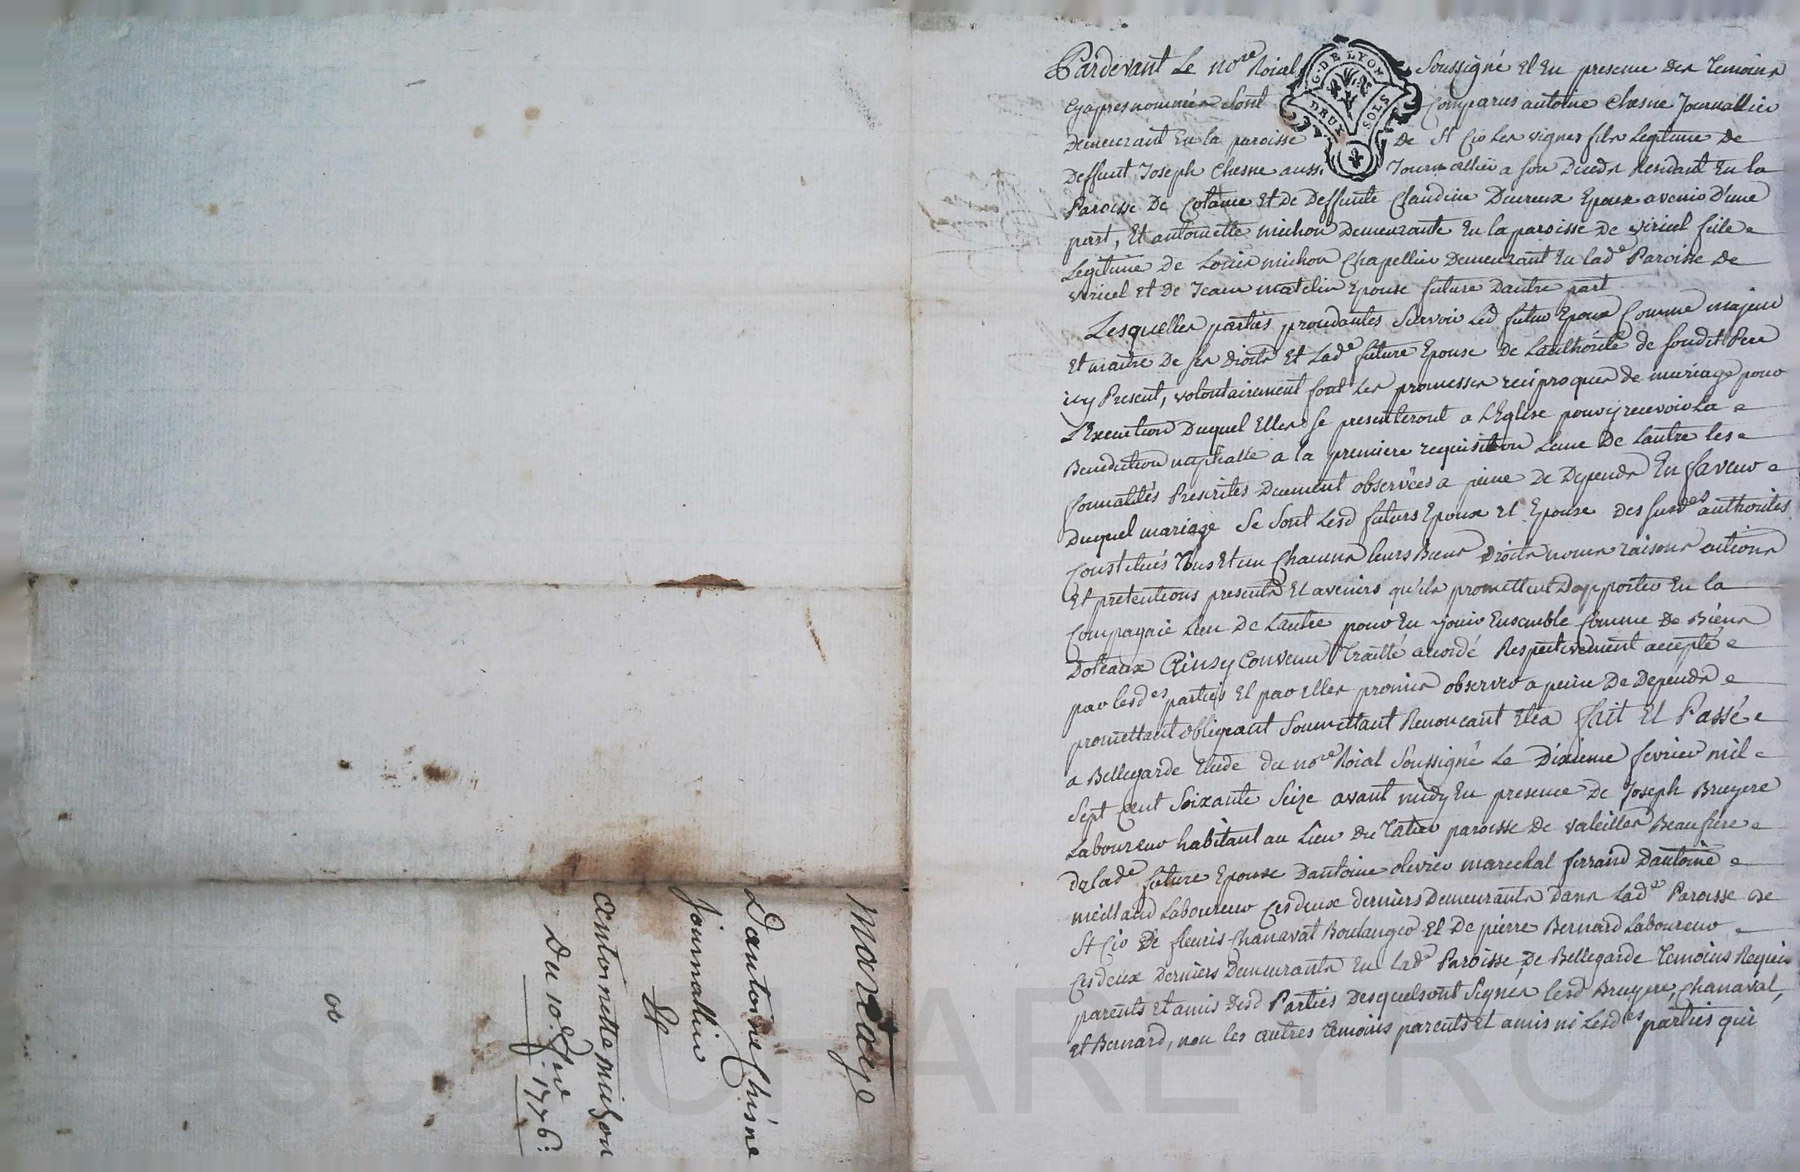 Pardevant Le no.re Roial Soussigné Et En presence des temoins
Cyapres nommés sont Comparus antoine Chesne Journallier
Demeurant En la paroisse De St Cio Les vignes fils Legitime de
Deffunt Joseph Chesne aussi Journallier a son Deceds Residant En la
Paroisse De Cotance Et de Deffunte Claudine Epoux avenir D'une
part, Et antoinette michon Demeurante En la paroisse de viricel fille
Legitime De Louis michon Chapellier Demeurant En lad.e Paroisse De
viricel Et De Jeanne Epouse future Dautre part
Lesquelles parties procedantes Scavoir Led futur Epoux Comme majeur
Et maitre De ses Droits Et Lad.e future Epouse De Lauthorité de sondit Pere
icy Present, volontairement font Les promesses reciproques de mariage pour
L'Execution Duquel Elles se presenteront a L'Eglise pour y recevoir La
Benediction nuptialle a la premiere requisition Lune De Lautre les
formalités Prescrites Duement observées a peine De Depends En faveur
Duquel mariage Se Sont Lesd futurs Epoux Et Epouse Des susd.es authorités
Constitués Tous Et un Chacuns leurs Biens Droits noms raisons actions
Et pretentions presents Et avenirs qu'ils promettent Dapporter En la
Compagnie Lun De Lautre pour En jouir Ensemble Comme De Biens
Doteaux Ainsy Convenu Traitté accordé Respectivement accepté
par lesd.es parties Et par Elles promis observer a peine De Depends
promettant obligeant Soumettant Renoncant Etca fait Et Passé
a Bellegarde Etude du no.re Roial Soussigné Le Dixieme fevrier mil
Sept Cent Soixante Seize avant midy En presence De Joseph Bruyere
Laboureur habitant au Lieu du paroisse de valeilles Beaufrere
de lad.e future Epouse Dantoine olivier marechal ferrand Dantoine
meilland Laboureur Ces deux derniers Demeurants Dans Lad.e Paroisse de
St Cio De fleuris Chanavat Boulanger Et De pierre Bernard Laboureur
Ces deux Derniers Demeurants En Lad.e Paroisse De Bellegarde Temoins Requis
parents Et amis Desd Parties Desquels ont Signes lesd Bruyere, Chanavat,
Et Bernard, non les autres temoins parents Et amis ni Lesd.es parties qui
Mariage
D'antoine Chesne
Journallier
Et
antoinette michon
Du 10.e fev.r 1776.
G. DE LYON
DEUX SOLS
CHAREYRON